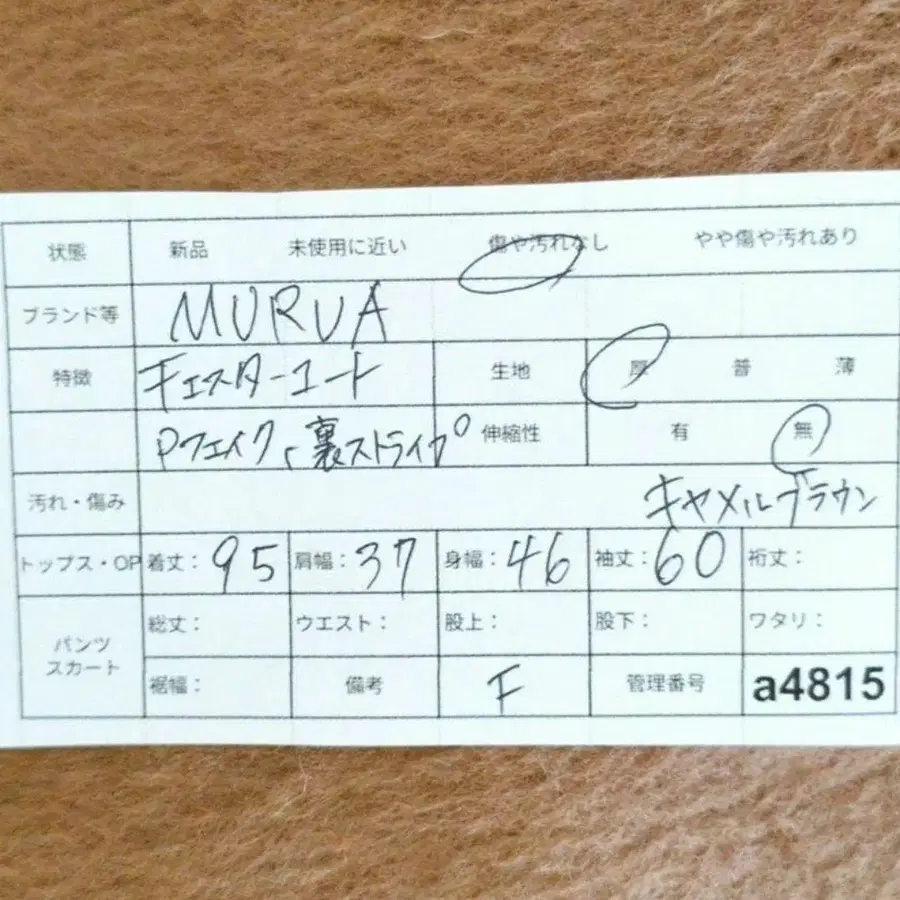 状態 新品 未使用に近い 傷や汚れなし やや傷や汚れあり
ブランド等 MURUA
特徴 チェスターコート 生地 厚 普 薄
Pフェイク、裏ストライプ 伸縮性 有 無
汚れ・傷み キャメルブラウン
トップス・OP 着丈：95 肩幅：37 身幅：46 袖丈：60 裄丈：
パンツ スカート 総丈： ウエスト： 股上： 股下： ワタリ：
裾幅： 備考 F 管理番号 a4815